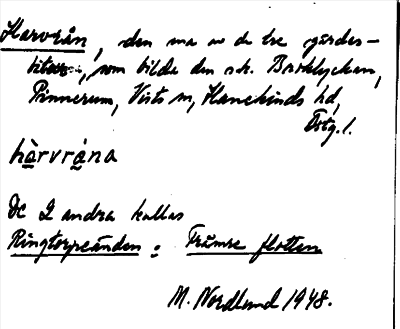 Harvrån, den ena av de tre gårdes-
, som bilda den s.k. Backlyckan,
Pinnerum, Vists sn, Hanekinds hd,
Östg. l.
hàrvråna
De 2 andra kallas
Ringtorpeänden o. Främre flotten
M. Nordlund 1948.